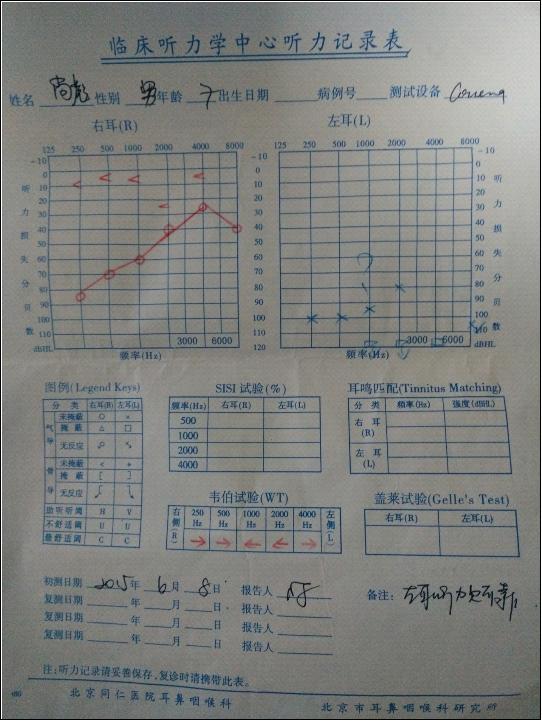 临床听力学中心听力记录表
姓名 性别 男 年龄 7 出生日期 病例号 测试设备
右耳(R) 左耳(L)
125 250 500 1000 2000 4000 8000 125 250 500 1000 2000 4000 8000
-10 -10 -10
0 0 0
10 10 10
20 20 20
30 30 30
40 40 40
50 50 50
60 60 60
70 70 70
80 80 80
90 90 90
100 100 100
110 110 110
120 120
听力损失分贝数 听力损失分贝数
dBHL 3000 6000 dBHL 3000 6000 dBHL
频率(Hz) 频率(Hz)
图例(Legend Keys) SISI 试验(%) 耳鸣匹配(Tinnitus Matching)
分类 右耳(R) 左耳(L) 频率(Hz) 右耳(R) 左耳(L) 分类 频率(Hz) 强度(dBHL)
气导 未掩蔽 ○ × 500 右耳(R)
掩蔽 △ □ 1000
无反应 2000 左耳(L)
骨导 未掩蔽 < > 4000
掩蔽 [ ]
无反应
助听听阈 H V
不舒适阈 U U
最舒适阈 C C
韦伯试验(WT) 盖莱试验(Gelle's Test)
右侧(R) 250 Hz 500 Hz 1000 Hz 2000 Hz 4000 Hz 左侧(L) 右耳(R) 左耳(L)
→ → ← ← →
初测日期 2015 年 6 月 8 日 报告人 备注: 左耳听力
复测日期 年 月 日 报告人
复测日期 年 月 日 报告人
复测日期 年 月 日 报告人
注:听力记录请妥善保存,复诊时请携带此表。
北京同仁医院耳鼻咽喉科 北京市耳鼻咽喉科研究所